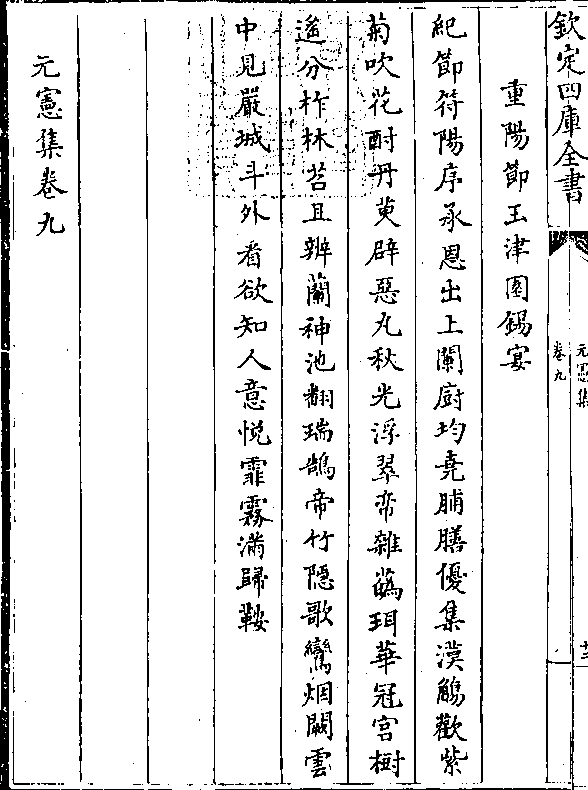 欽定四庫全書
元憲集
卷九
重陽節玉津園錫宴
紀節符陽序承恩出上闌廚均堯脯膳優集漢觴歡紫
菊吹花酎丹萸辟惡丸秋光浮翠帟雜藹珥華冠宫樹
遥分柞林苕且辨蘭神池翻瑞鵠帝竹隠歌鸞烟闕雲
中見嚴城斗外看欲知人意悦霏霧滿歸鞍
元憲集卷九